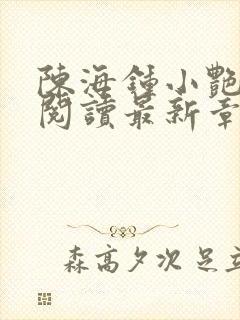 陳海鍾小艷
閱讀最新章
森高夕次 足立